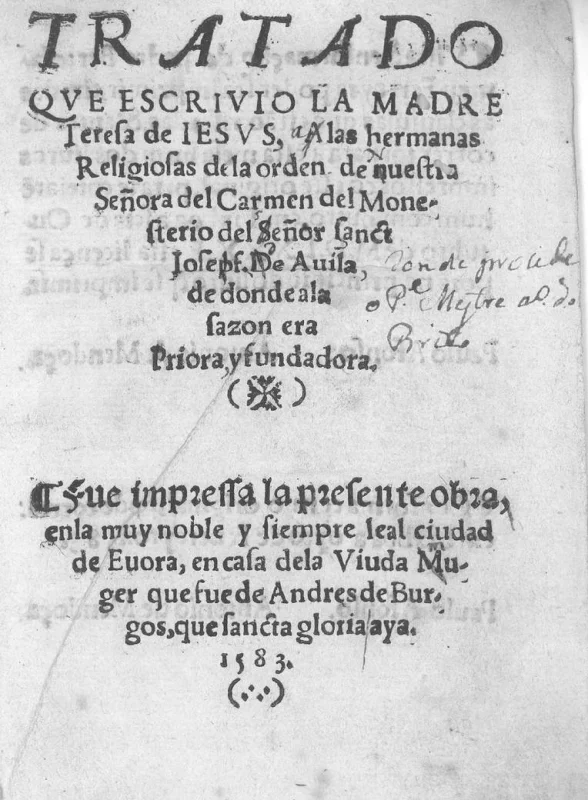 TRATADO
QVE ESCRIVIO LA MADRE
Teresa de IESVS, A las hermanas
Religiosas de la orden de nuestra
Señora del Carmen del Mone-
sterio del Señor sanct
Joseph. De Auila,
de donde a la
sazon era
Priora, y fundadora.
¶ Fue impressa la presente obra,
en la muy noble y siempre leal ciudad
de Euora, en casa de la Viuda Mu-
ger que fue de Andres de Bur-
gos, que sancta gloria aya.
1583.